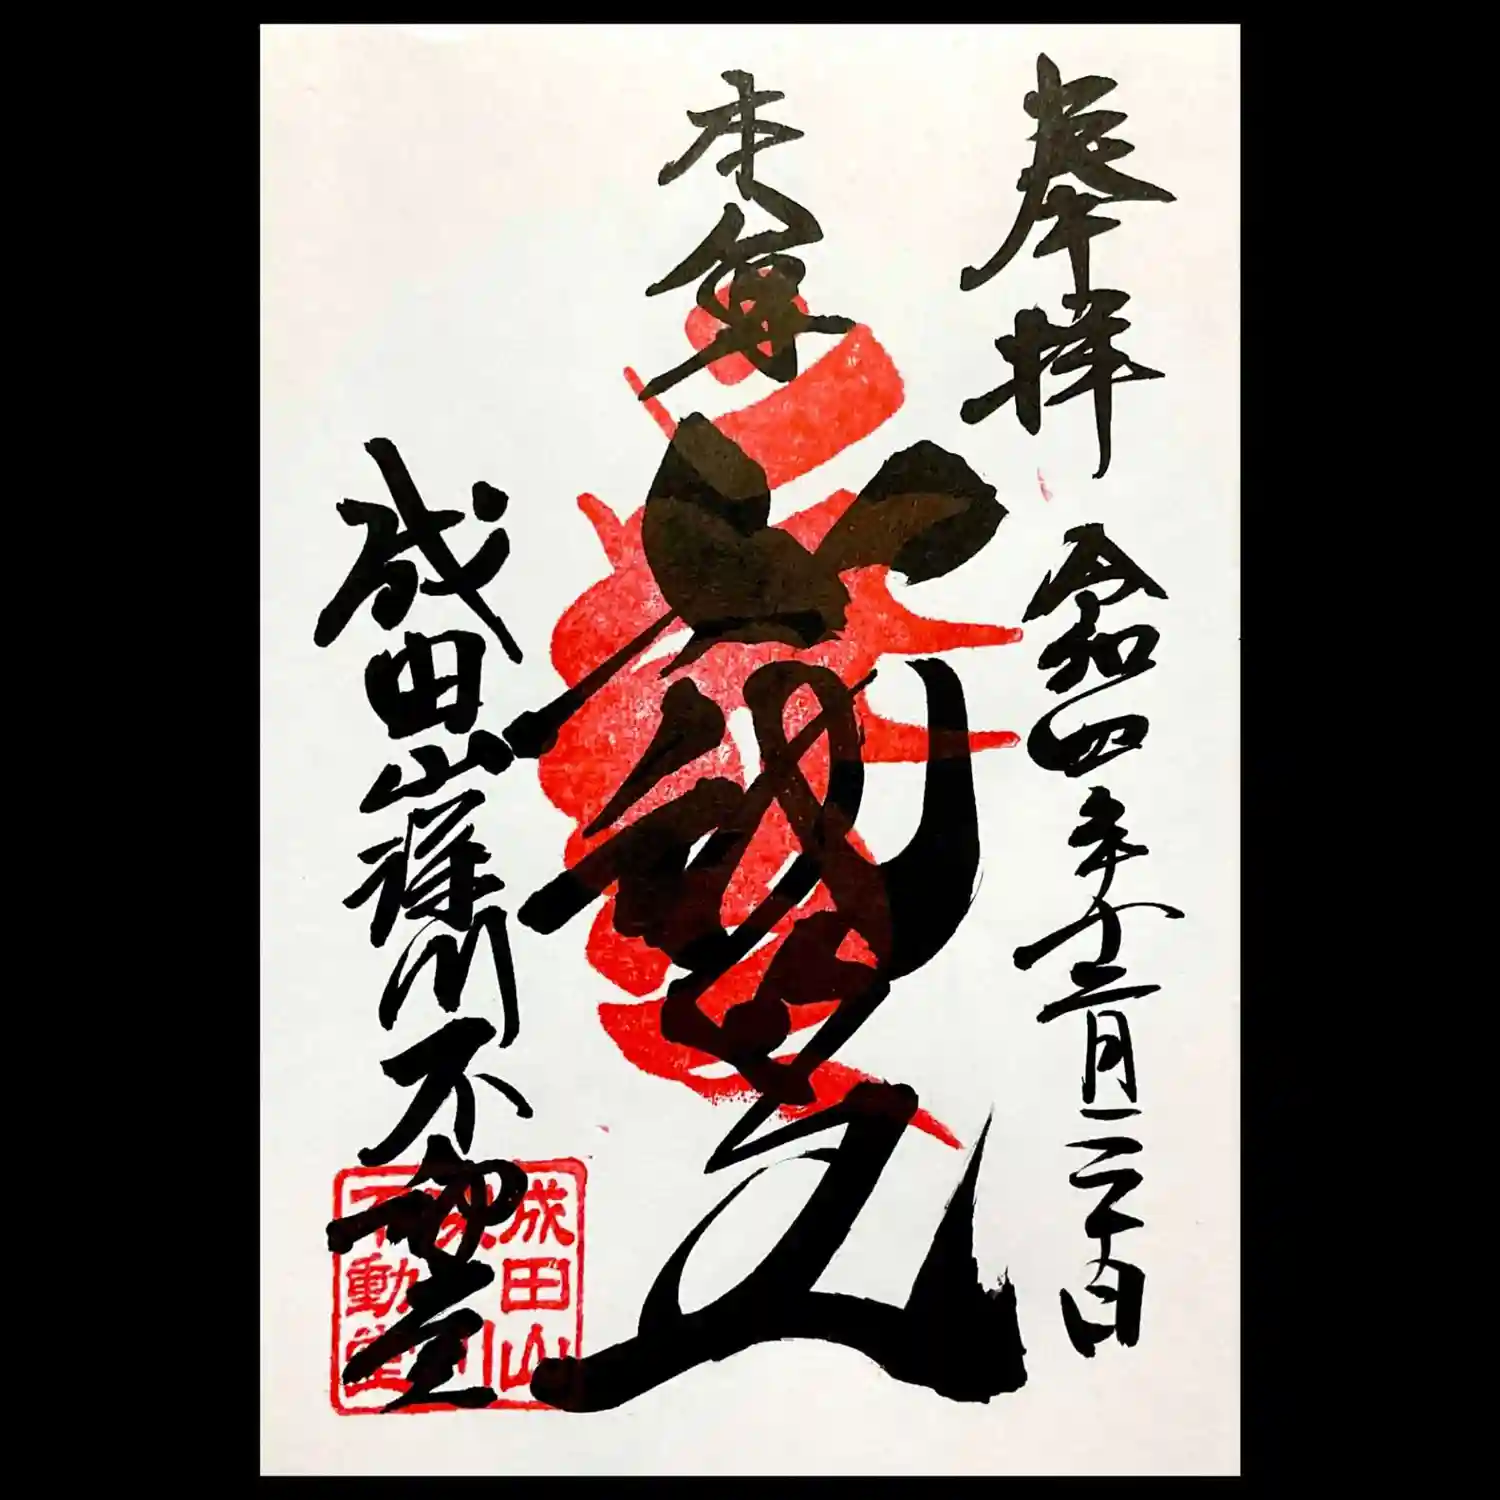 奉拝 令和四年十二月二十日
本尊
成田山深川不動堂
成田山
深川
不動堂